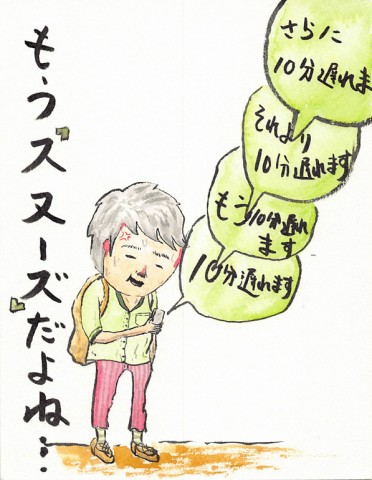 もう゛スヌーズ゛だよね…
さらに
10分遅れま
それより
10分遅れます
もう10分遅れ
ます
10分遅れます